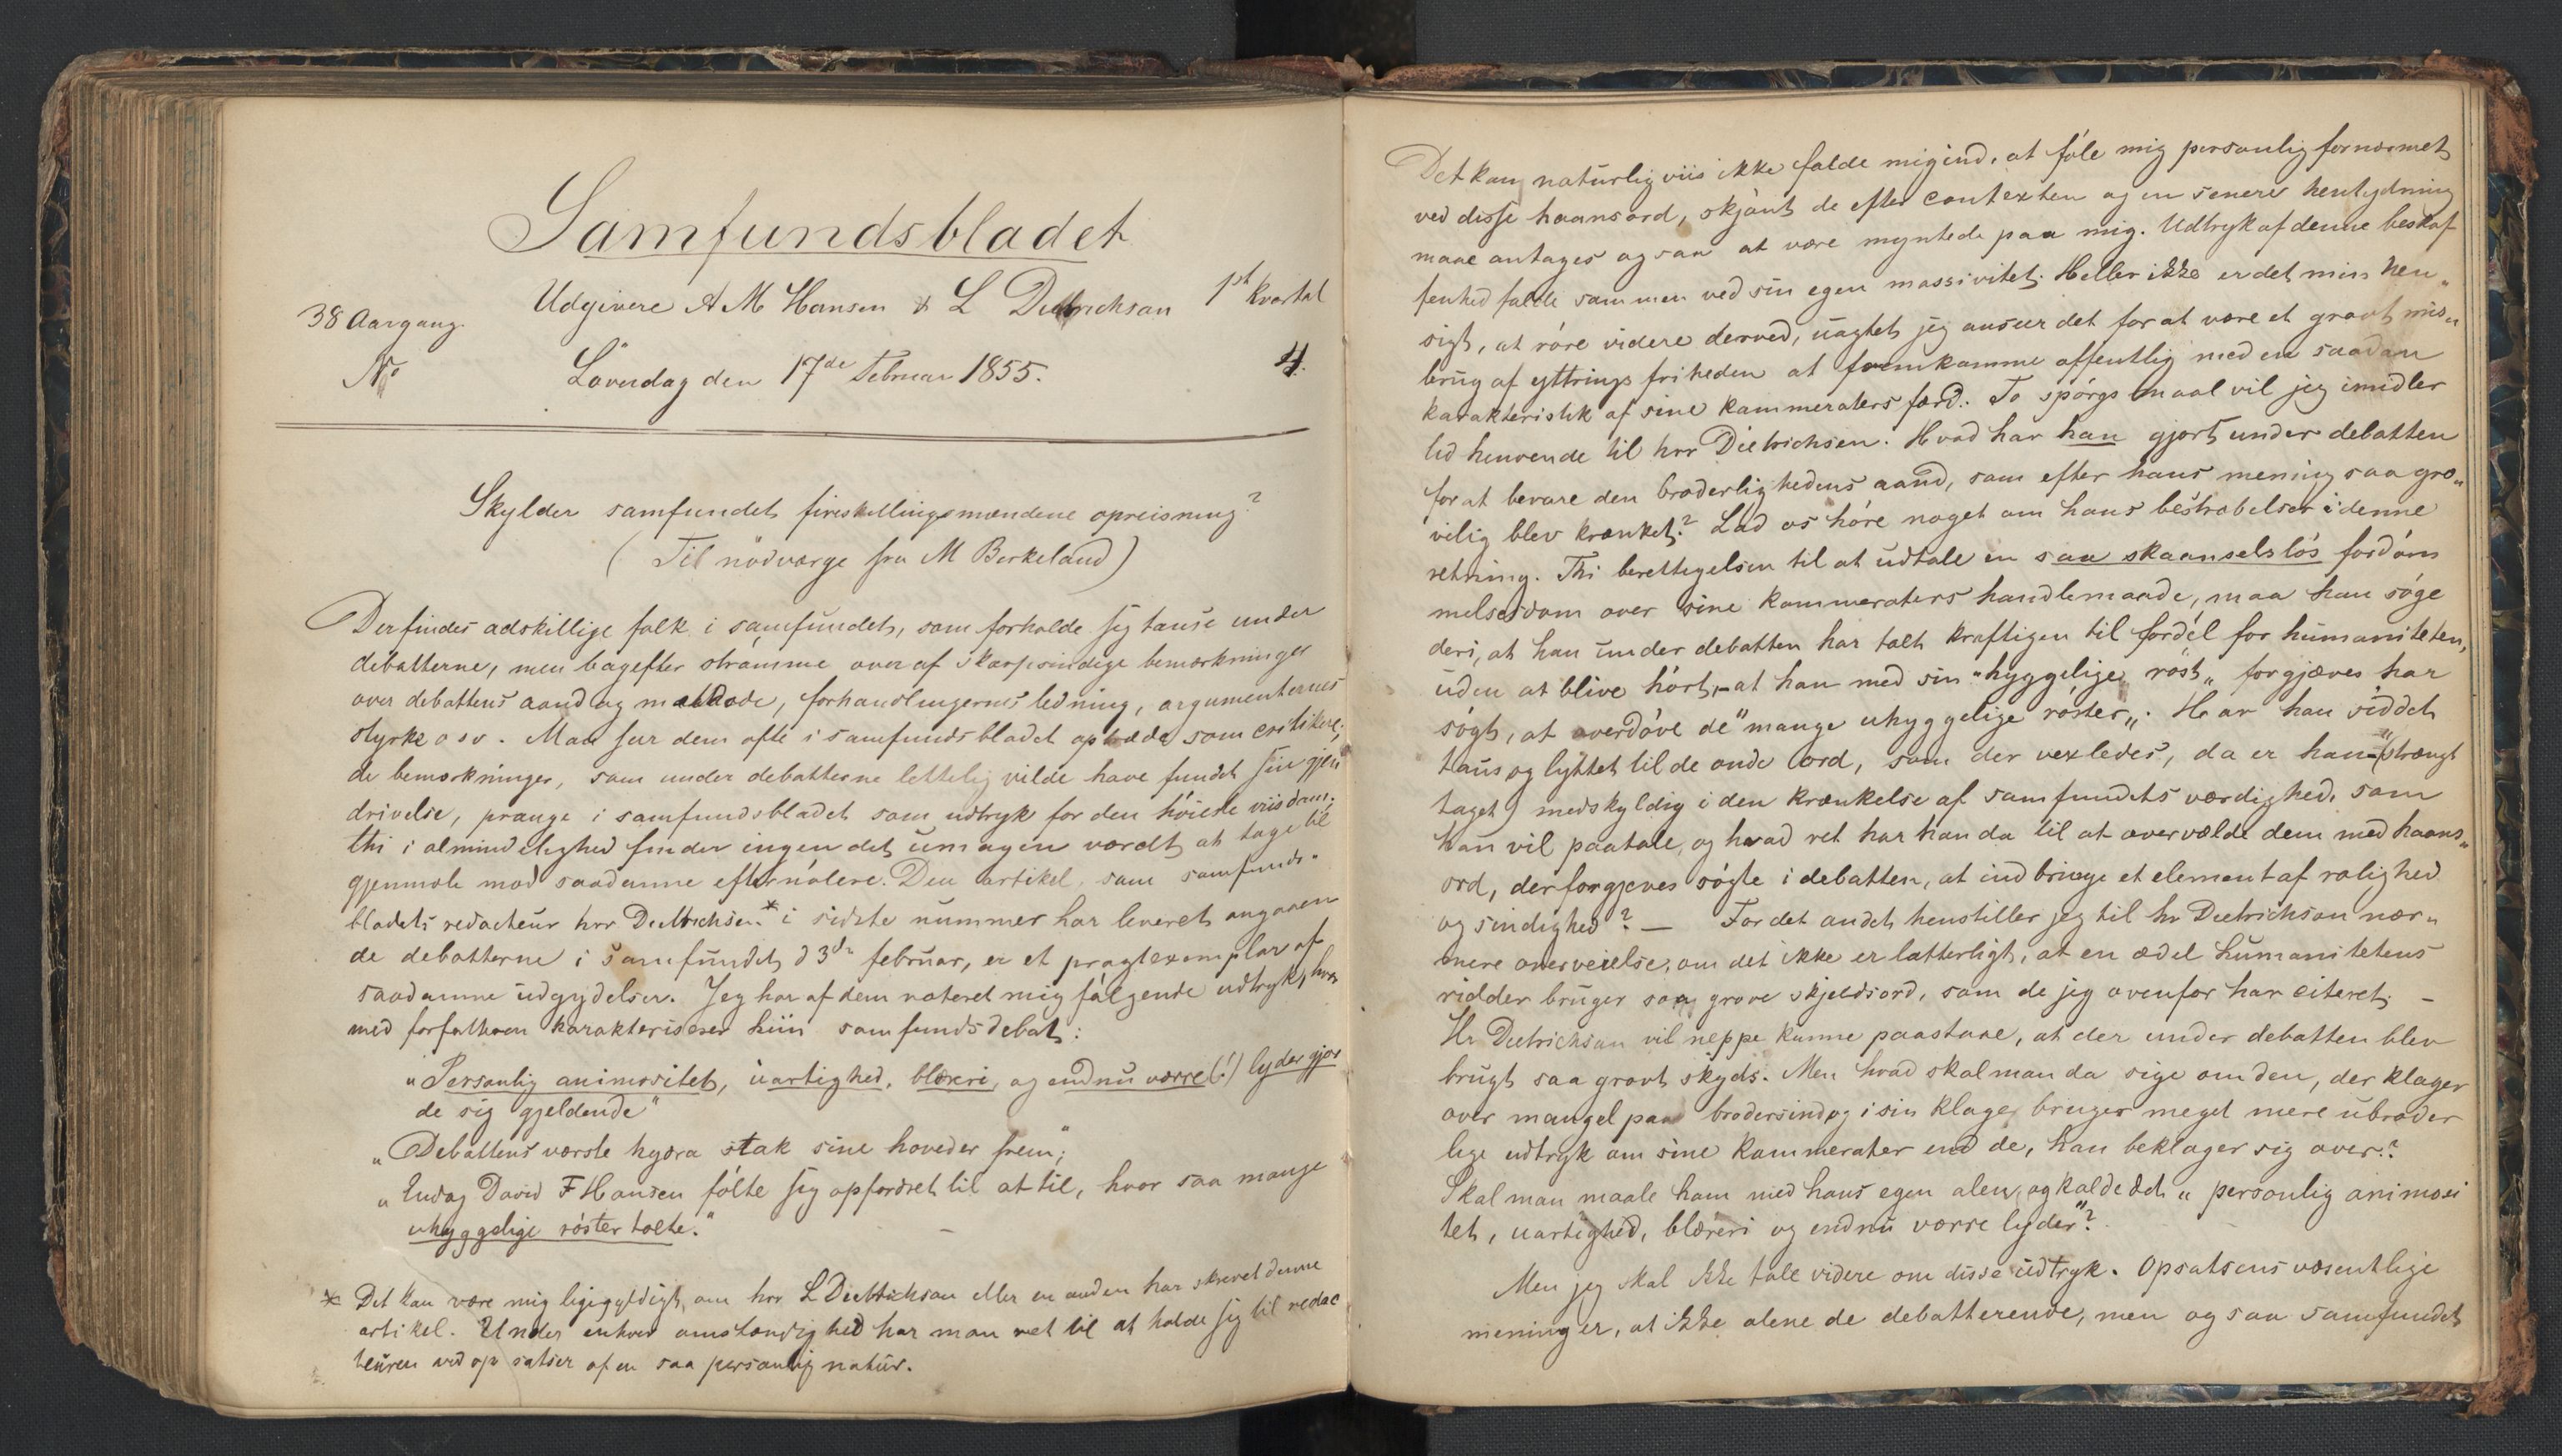 Samfundsbladet
Udgivere A M Hansen & L Dietrichson 1st kvartal
38 Aargang.
No Löverdag den 17de Februar 1855. 4.
Skylder samfundet fireskillingsmændene opreisning?
(Til nödværge fra M Birkeland)
Der findes adskillige folk i samfundet, som forholde sig tause under
debatterne, men bagefter strömme over af skarpsindige bemærkninger
over debattens aand og methode, forhandlingernes ledning, argumenternes
styrke osv. Man ser dem ofte i samfundsbladet optræde som critikere;
de bemærkninger, som under debatterne lettelig vilde have fundet sin gjen
drivelse, prange i samfundsbladet som udtryk for den höieste viisdom;
thi i almindelighed finder ingen det umagen værdt at tage til
gjenmæle mod saadanne efternölere. Den artikel, som samfunds„
bladets redacteur hrr Dietrichson* i sidste nummer har leveret angaaen
de debatterne i samfundet d 3die februar, er et pragtexemplar af
saadanne udgydelser. Jeg har af dem noteret mig fölgende udtryk, hvor
med forfatteren karakteriserer hiin samfundsdebat:
„Personlig animositet, uartighed, blæreri, og endnu værre (!) lyder gjor
de sig gjeldende"
„Debattens værste hydra stak sine hoveder frem",
„Endog David F Hansen fölte sig opfordret til at tie, hvor saa mange
uhyggelige röster talte." —
* Det kan være mig ligegyldigt, om hrr L Dietrichson eller en anden har skrevet denne
artikel. Under enhver omstændighed har man ret til at holde sig til redac
teuren ved opsatser af en saa personlig natur.
Det kan naturligviis ikke falde mig ind, at föle mig personlig fornærmet
ved disse haansord, skjönt de efter contexten og en senere hentydning
maae antages ogsaa at være myntede paa mig. Udtryk af denne beskaf
fenhed falde sammen ved sin egen massivitet. Heller ikke er det min hen„
sigt, at röre videre derved, uagtet jeg anseer det for at være et grovt mis„
brug af yttringsfriheden at fremkomme offentlig med en saadan
karakteristik af sine kammeraters færd. To spörgsmaal vil jeg imidler
tid henvende til hrr Dietrichson. Hvad har han gjort under debatten
for at bevare den broderlighedens aand, som efter hans mening saa gro„
velig blev krænket? Lad os höre noget om hans bestræbelser i denne
retning. Thi berettigelsen til at udtale en saa skaanselslös fordöm
melsesdom over sine kammeraters handlemaade, maa han söge
deri, at han under debatten har talt kraftigen til fordel for humaniteten,
uden at blive hört, – at han med sin „hyggelige röst„ forgjæves har
sögt, at overdöve de "mange uhyggelige röster„. Har han siddet
taus og lyttet til de onde ord, som der vexledes, da er han (strængt
taget) medskyldig i den krænkelse af samfundets værdighed, som
han vil paatale, og hvad ret har han da til at overvælde dem med haans„
ord, der forgjeves sögte i debatten, at indbringe et element af rolighed
og sindighed? — For det andet henstiller jeg til hr Dietrichson nær„
mere overveielse, om det ikke er latterligt, at en ædel humanitetens
ridder bruger saa grove skjeldsord, som de jeg ovenfor har citeret. —
Hr Dietrichson vil neppe kunne paastaae, at der under debatten blev
brugt saa grovt skyds. Men hvad skal man da sige om den, der klager
over mangel paa brodersind og i sin klage bruger meget mere ubroder
lige udtryk om sine kammerater end de, han beklager sig over?
Skal man maale ham med hans egen alen, og kalde det „personlig animosi
tet, uartighed, blæreri og endnu værre lyder"?
Men jeg skal ikke tale videre om disse udtryk. Opsatsens væsentlige
mening er, at ikke alene de debatterende, men ogsaa samfundet